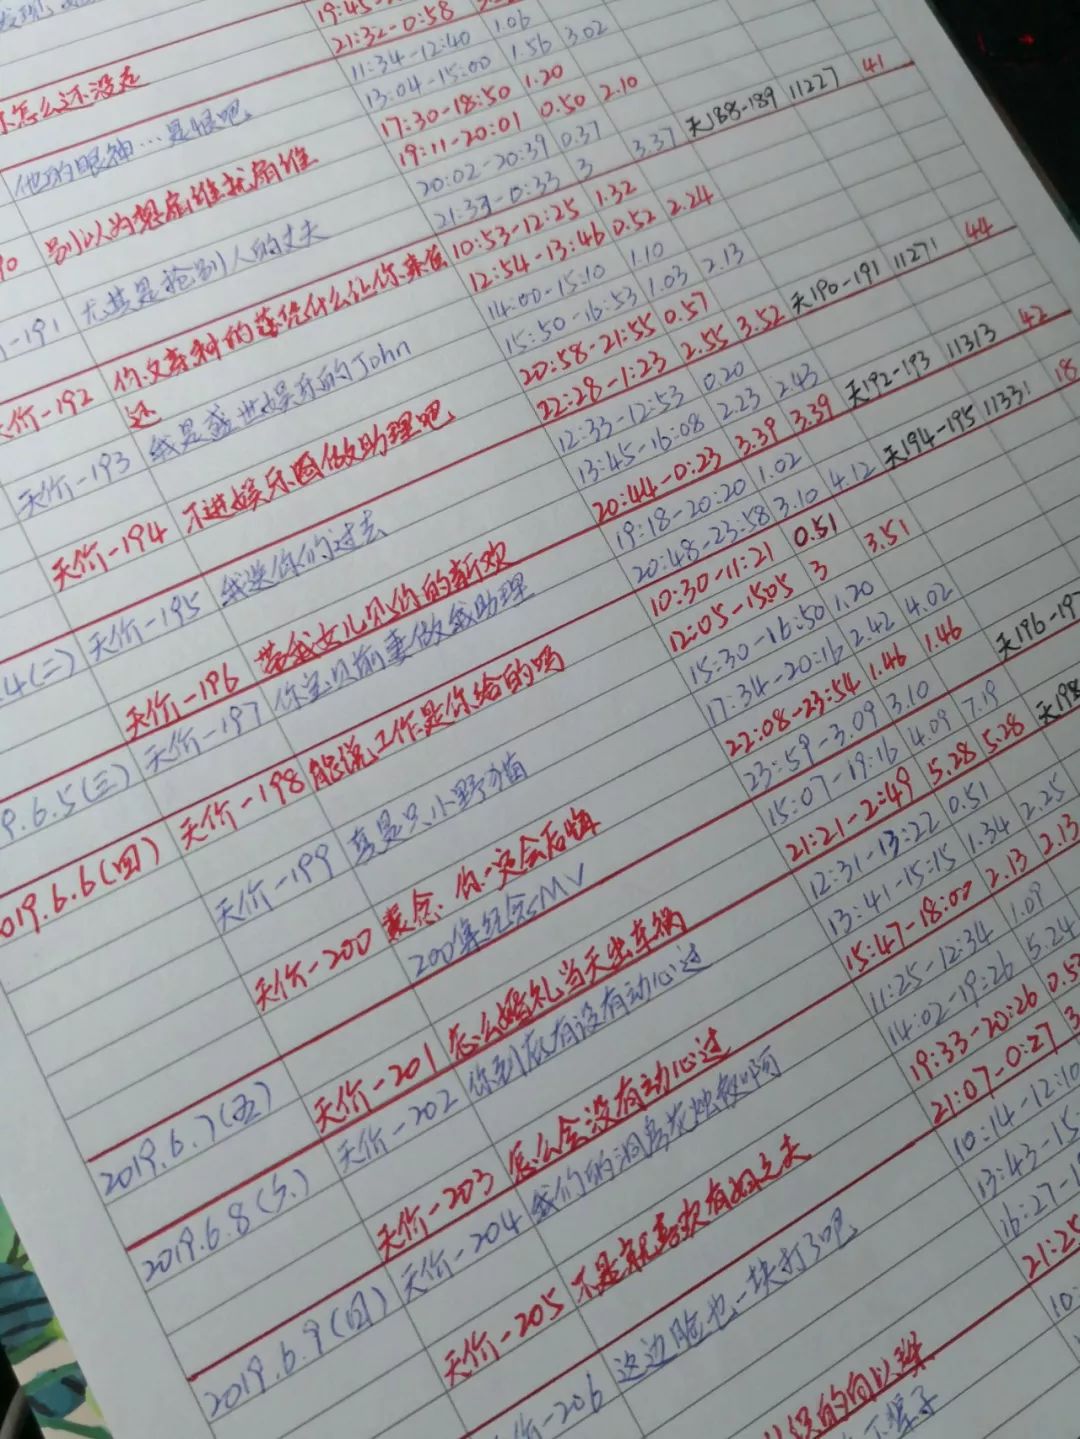 19:45-
21:32-0:58
怎么还没走 11:34-12:40 1.06
13:04-15:00 1.56 3.02
他的眼神…是恨吧 17:30-18:50 1.20
19:11-20:01 0.50 2.10 天188-189 11227 41
别以为想扇谁就扇谁 20:02-20:39 0.37
21:33-0:33 3 3.37
-191 尤其是抢别人的丈夫 10:53-12:25 1.32
12:54-13:46 0.52 2.24
天价-192 14:00-15:10 1.10
15:50-16:53 1.03 2.13 天190-191 11271 44
天价-193 我是盛世娱乐的John 20:58-21:55 0.57
22:28-1:23 2.55 3.52
天价-194 不进娱乐圈做助理吧 12:33-12:53 0.20
13:45-16:08 2.23 2.43 天192-193 11313 42
天价-195 我送你们过去 20:44-0:23 3.39 3.39
天价-196 带我女儿见你的新欢 19:18-20:20 1.02
20:48-23:58 3.10 4.12 天194-195 11331 18
6.5(三) 天价-197 你宝贝前妻做我助理 10:30-11:21 0.51
12:05-15:05 3 3.51
2019.6.6(四) 天价-198 能说工作是你给的吗 15:30-16:50 1.20
17:34-20:16 2.42 4.02
天价-199 真是只小野猫 22:08-23:54 1.46 1.46 天196-197
天价-200 你一定会后悔 23:59-3:09 3.10
200集纪念MV 15:07-19:16 4.09 7.19
21:21-2:49 5.28 5.28 天198
2019.6.7(五) 天价-201 怎么婚礼当天出车祸 12:31-13:22 0.51
13:41-15:15 1.34 2.25
天价-202 你到底有没有动心过 15:47-18:00 2.13 2.13
2019.6.8(六) 天价-203 怎么会没有动心过 11:25-12:34 1.09
14:02-19:26 5.24
天价-204 我们的洞房花烛夜啊 19:33-20:26 0.5
21:07-0:27 3
2019.6.9(日) 天价-205 不是就喜欢有妇之夫 10:14-12:10
13:43-15
16:27-1
-206 这边脸也一块打了吧 21:25
10:
骗子